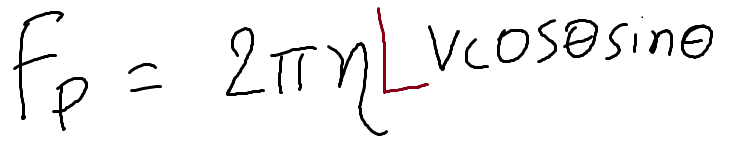 Fp = 2πηLVcosθsinθ